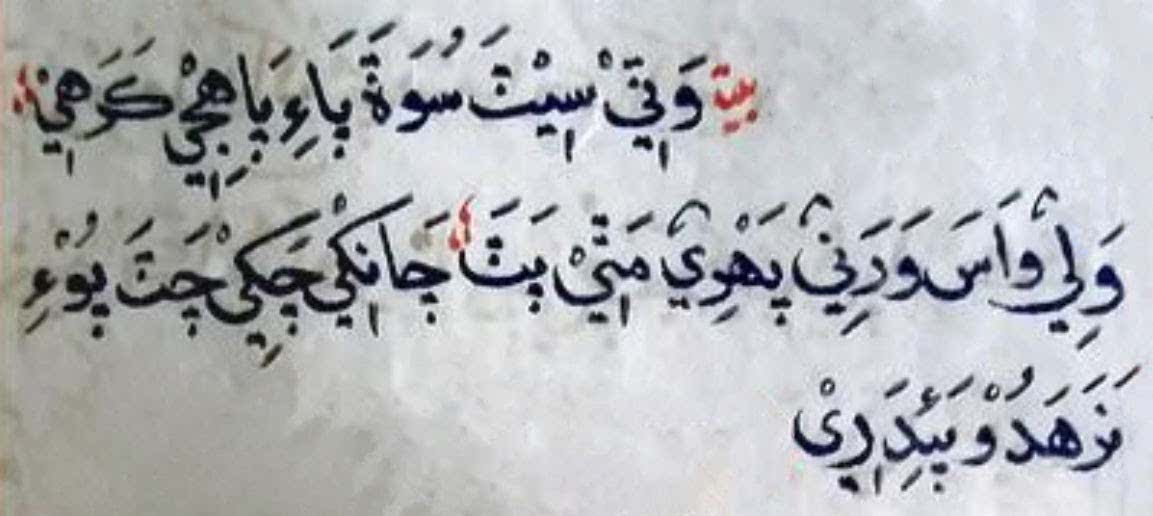 بيت وَتِيْ سِيْتَ سُوَةَ پَاءِ پَاهِجِيْ كَرَهِيْ؛
وَلِيْ وَاسَ وَرَنِيْ پَهْوِيْ مَتِيْ پَتَ؛ چَانْكِيْ چَكِيْ چَتَ پُوْءِ
نَرَهَدُوْ پَئِدَرِيْ